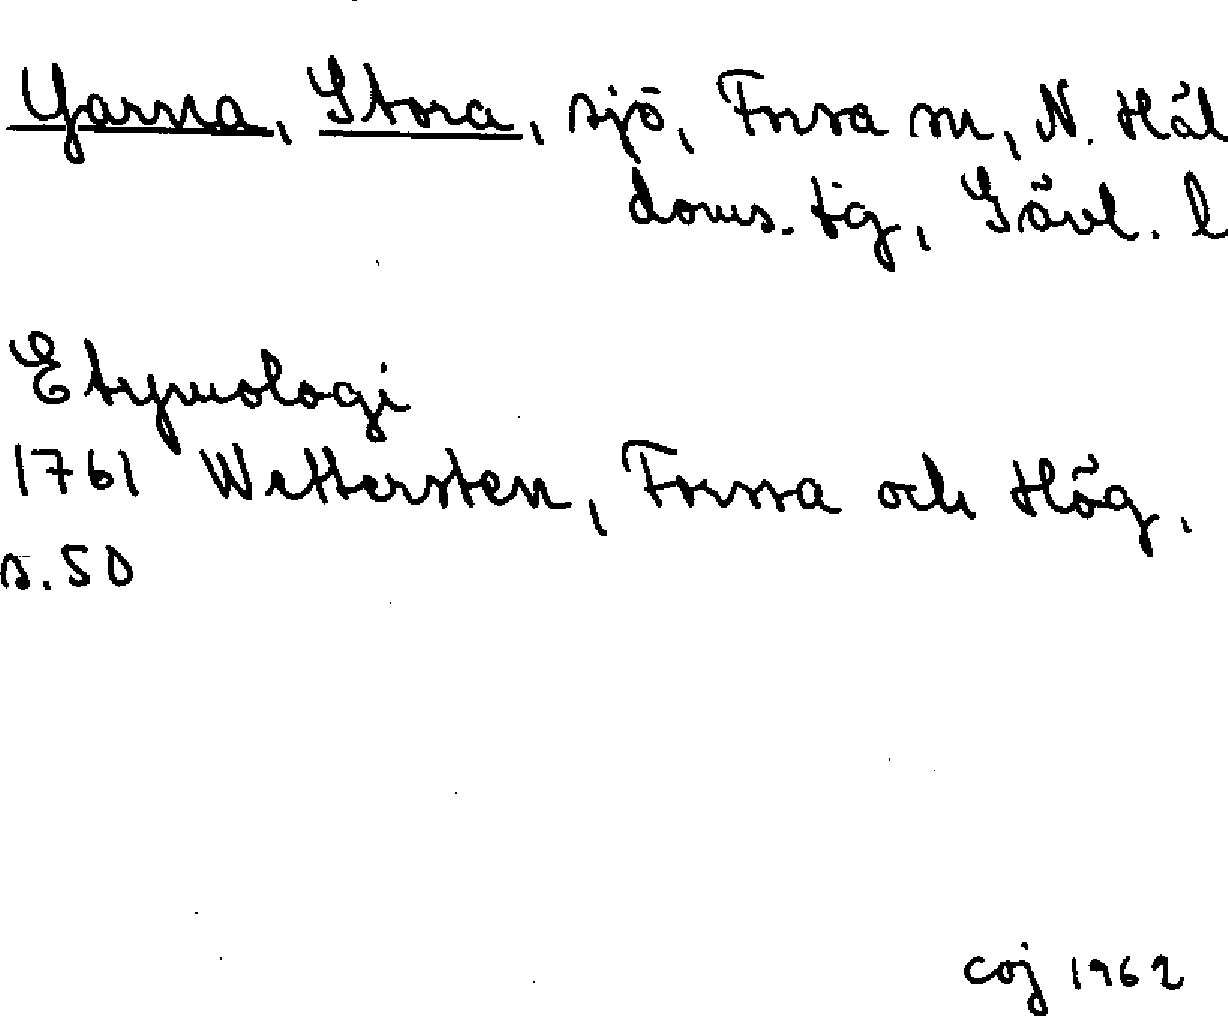 Yarna, Stora, sjö, Forsa sn, N. Häl
doms. tg, Gävl. l
Etymologi
1761 Wettersten, Forssa och Hög,
s. 50
coj 1962